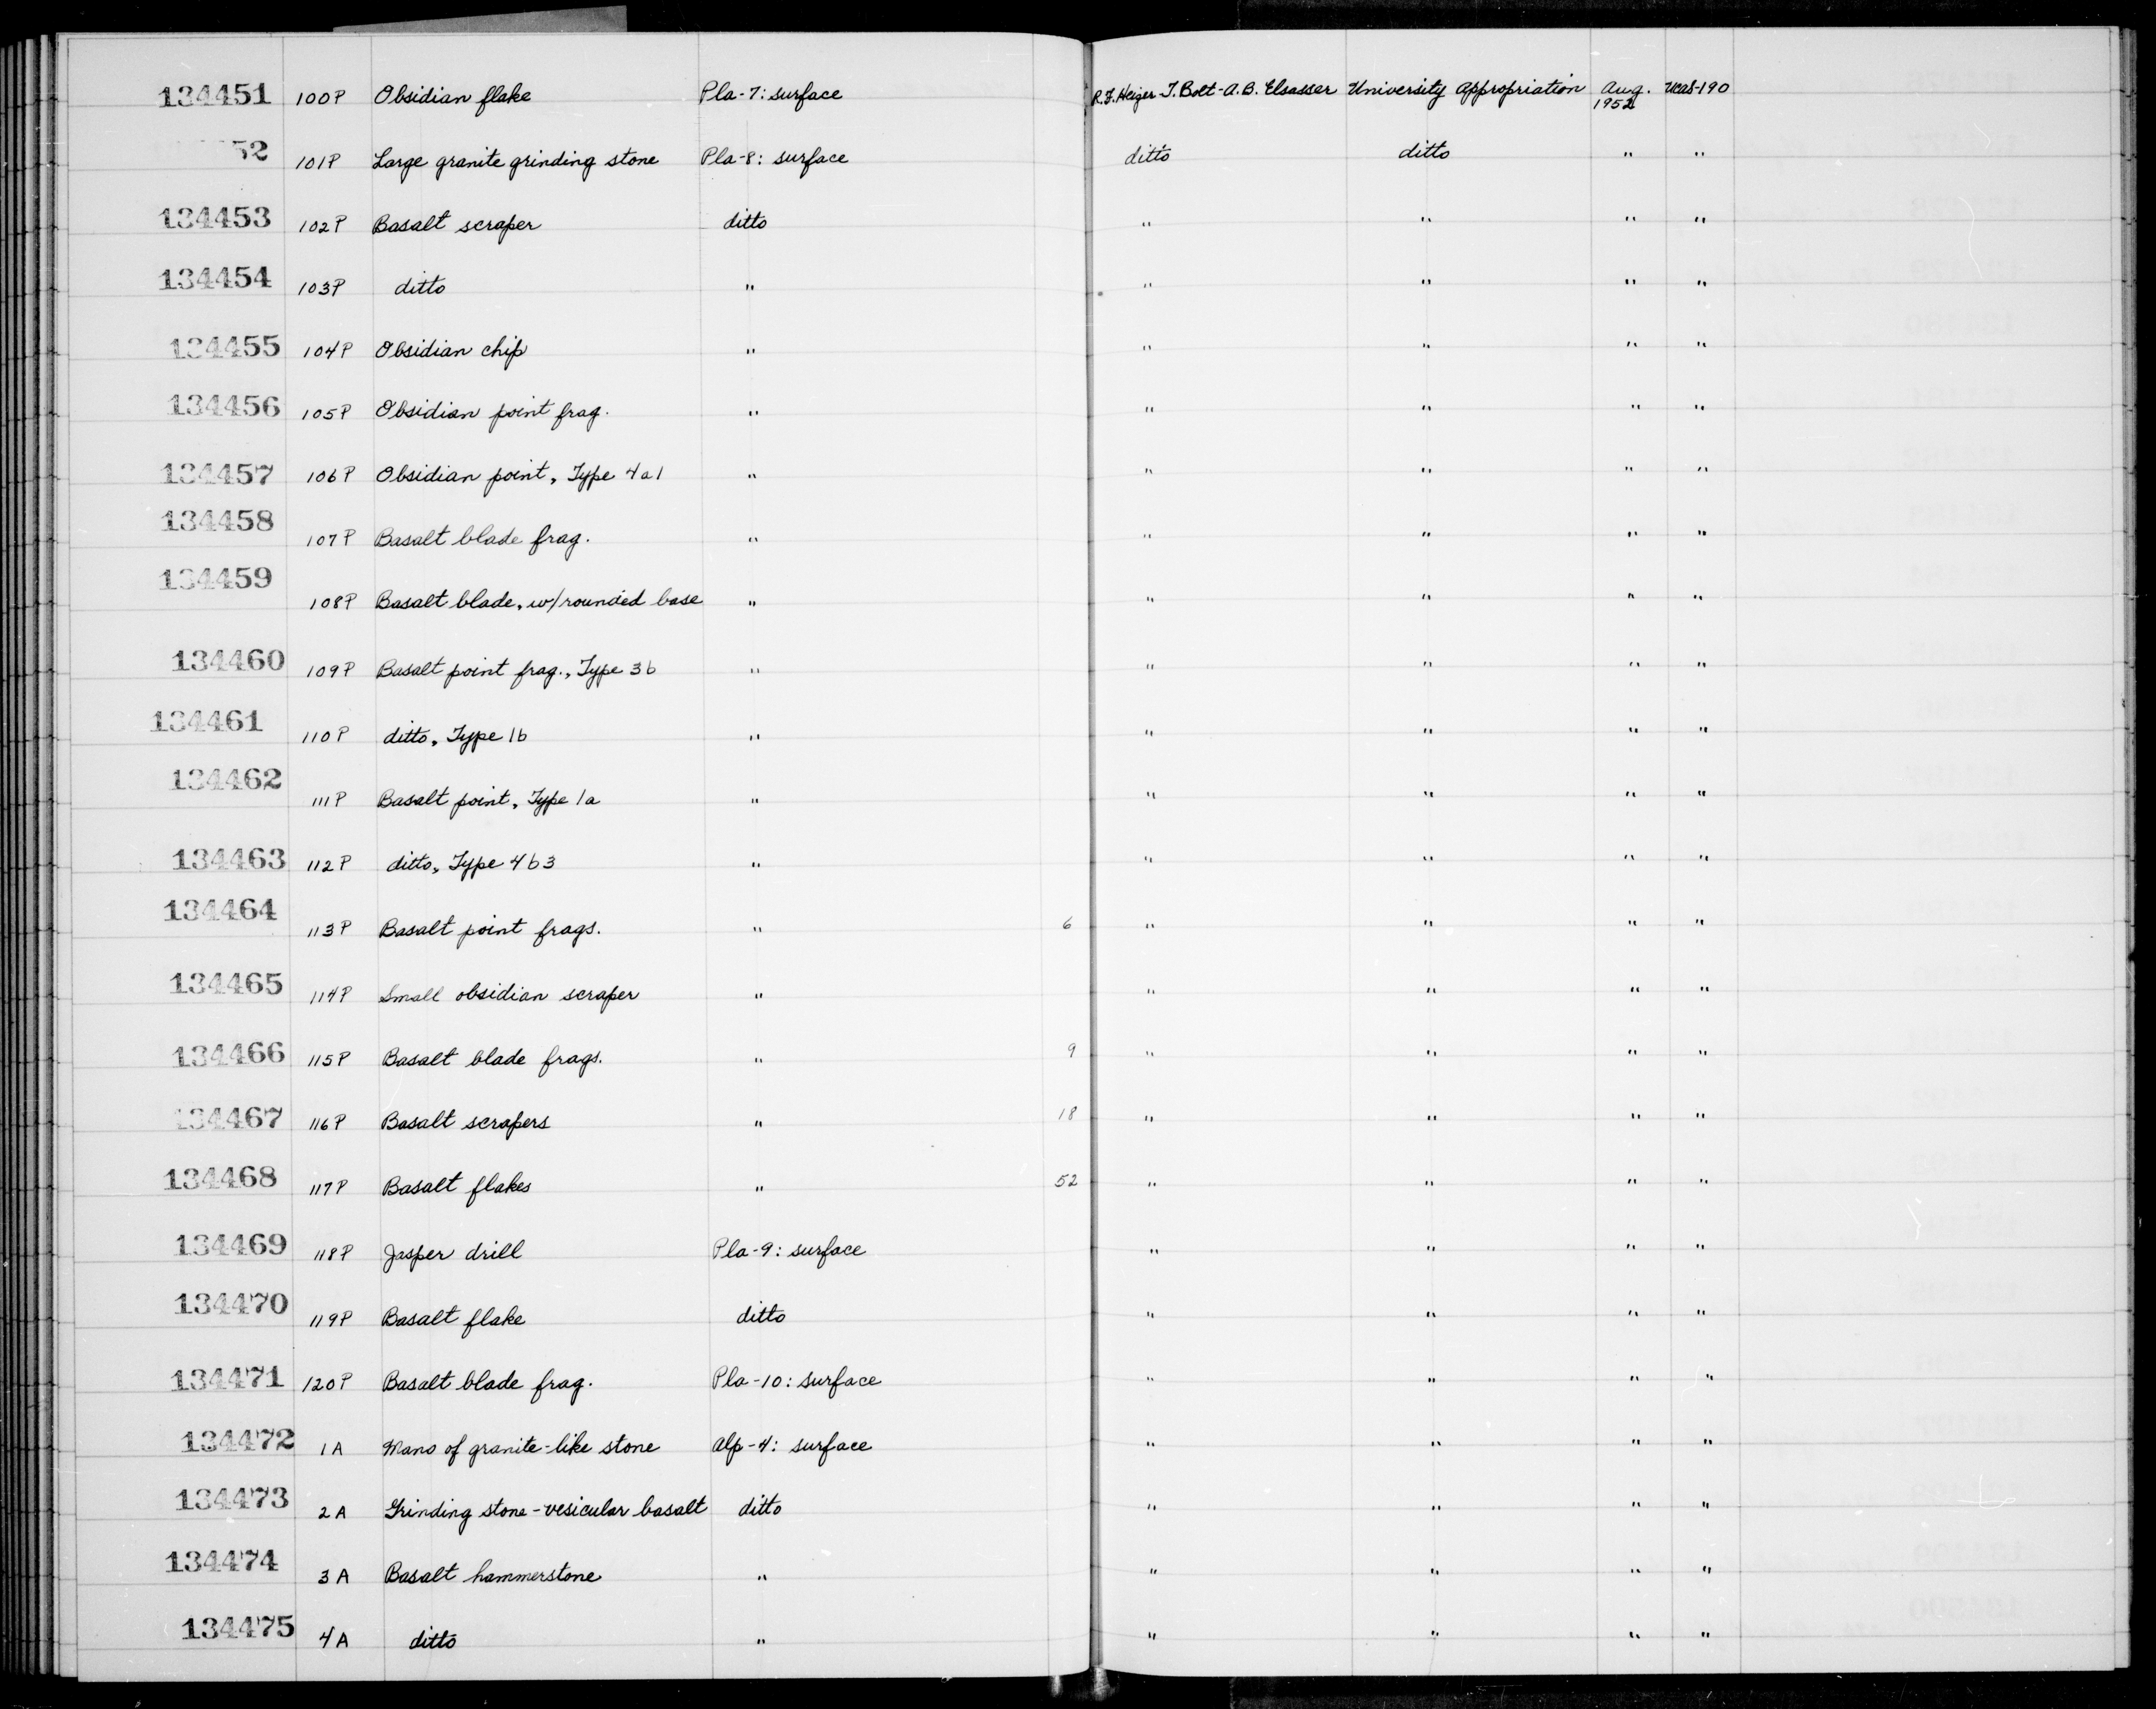 134451 100P Obsidian flake Pla-7: surface R.F. Heizer-T. Bolt-A.B. Elsasser University Appropriation Aug. 1952 UCAS-190
52 101P Large granite grinding stone Pla-8: surface ditto ditto " "
134453 102P Basalt scraper ditto " " " "
134454 103P ditto " " " " "
134455 104P Obsidian chip " " " " "
134456 105P Obsidian point frag. " " " " "
134457 106P Obsidian point, Type 4a1 " " " " "
134458 107P Basalt blade frag. " " " " "
134459 108P Basalt blade, w/rounded base " " " " "
134460 109P Basalt point frag., Type 3b " " " " "
134461 110P ditto, Type 1b " " " " "
134462 111P Basalt point, Type 1a " " " " "
134463 112P ditto, Type 4b3 " " " " "
134464 113P Basalt point frags. " 6 " " " "
134465 114P Small obsidian scraper " " " " "
134466 115P Basalt blade frags. " 9 " " " "
134467 116P Basalt scrapers " 18 " " " "
134468 117P Basalt flakes " 52 " " " "
134469 118P Jasper drill Pla-9: surface " " " "
134470 119P Basalt flake ditto " " " "
134471 120P Basalt blade frag. Pla-10: surface " " " "
134472 1A Mano of granite-like stone Alp-4: surface " " " "
134473 2A Grinding stone-vesicular basalt ditto " " " "
134474 3A Basalt hammerstone " " " " "
134475 4A ditto " " " " "